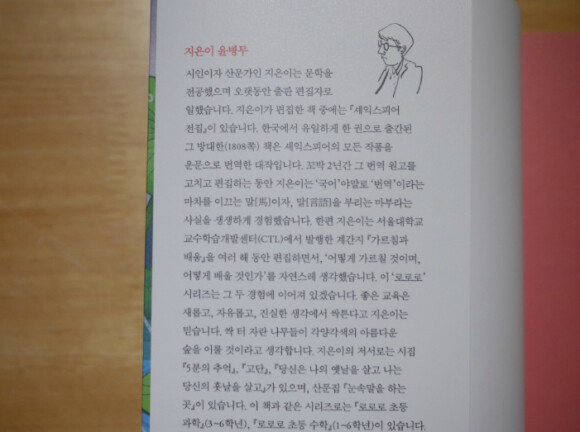 지은이 윤병무
시인이자 산문가인 지은이는 문학을
전공했으며 오랫동안 출판 편집자로
일했습니다. 지은이가 편집한 책 중에는 『셰익스피어
전집』이 있습니다. 한국에서 유일하게 한 권으로 출간된
그 방대한(1808쪽) 책은 셰익스피어의 모든 작품을
운문으로 번역한 대작입니다. 꼬박 2년간 그 번역 원고를
고치고 편집하는 동안 지은이는 ‘국어’야말로 ‘번역’이라는
마차를 이끄는 말[馬]이자, 말[言語]을 부리는 마부라는
사실을 생생하게 경험했습니다. 한편 지은이는 서울대학교
교수학습개발센터(CTL)에서 발행한 계간지 『가르침과
배움』을 여러 해 동안 편집하면서, ‘어떻게 가르칠 것이며,
어떻게 배울 것인가’를 자연스레 생각했습니다. 이 ‘로로로’
시리즈는 그 두 경험에 이어져 있겠습니다. 좋은 교육은
새롭고, 자유롭고, 진실한 생각에서 싹튼다고 지은이는
믿습니다. 싹 터 자란 나무들이 각양각색의 아름다운
숲을 이룰 것이라고 생각합니다. 지은이의 저서로는 시집
『5분의 추억』, 『고단』, 『당신은 나의 옛날을 살고 나는
당신의 훗날을 살고』가 있으며, 산문집 『눈속말을 하는
곳』이 있습니다. 이 책과 같은 시리즈로는 『로로로 초등
과학』(3~6학년), 『로로로 초등 수학』(1~6학년)이 있습니다.